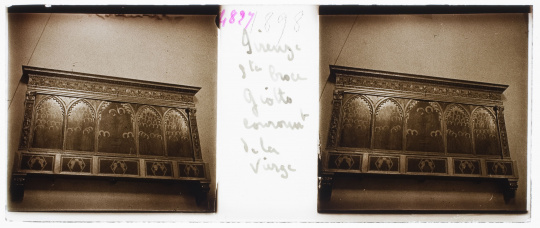 4827 1898
Firenze
Sta Croce
Giotto
Couronnt
de la
Vierge